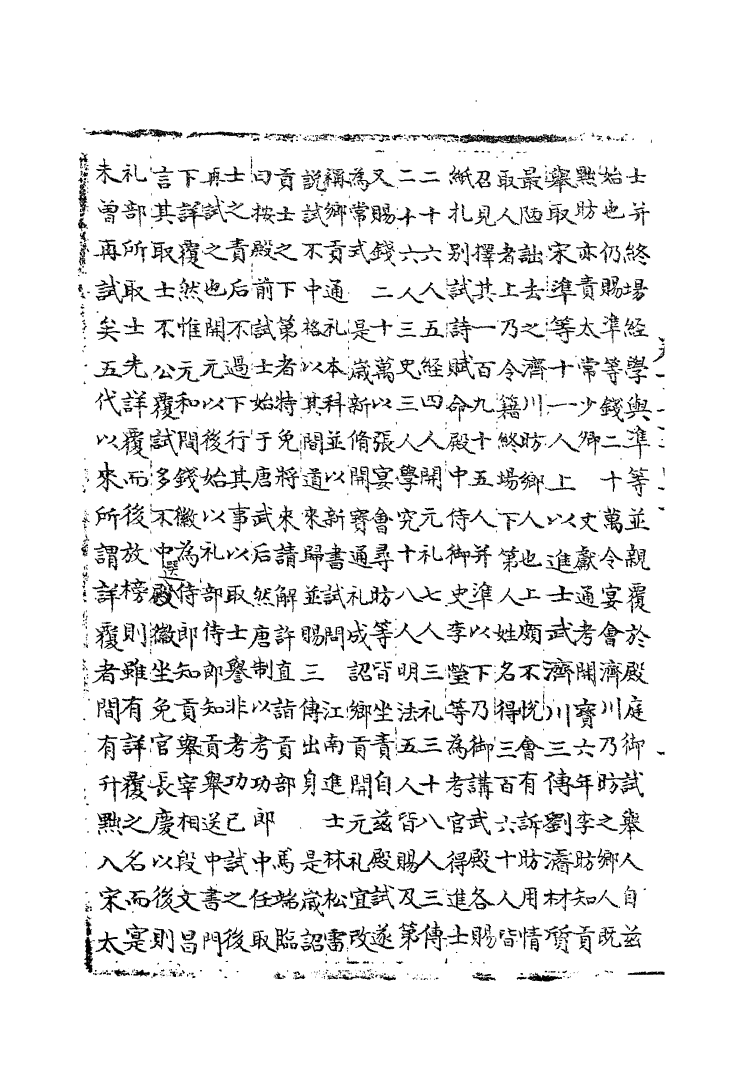 士并終場經學與準等並親覆於殿庭御試舉人自兹
始也仍賜準等錢二十萬令宴會濟川乃昉之鄉人既
黜昉亦責太常少卿 文獻通考開寶六年李昉知貢
舉取宋準等十一人上以進士武濟川三傳劉濬材質
最陋詘去之濟川昉鄉人也上頗不悅會有訴昉用情
取人者上乃令籍終場下第人姓名得三百六十人皆
召見擇其一百九十五人并準以下乃御講武殿各賜
紙札别試詩賦命殿中侍御史李瑩等為考官得進士
二十六人五經四人開元礼七人三礼三十八人三傳
二十六人三史三人學究十八人明法五人皆賜及第
又賜錢二十萬以張宴會尋昉等皆坐責自兹殿試遂
為常式 是歲新脩開寶通礼成 詔鄉貢開元礼宜改
稱鄉貢通礼本科並以新書試問 江南進士林松雷
說試不中格以其間道來歸並賜三傳出身 是歲詔
貢士之下第者特免將來請解許直詣貢部 馬端臨
曰按殿前試士始于唐武后然唐制以考功郎中任取
士之責后不過下行其事以取士譽非考功已試之後
再試之也開元以後始以礼部侍郎知貢舉送中書門
下詳覆然惟元和間錢徽為侍郎知貢舉宰相段文昌
言其取士不公覆試多不中選徽坐免官長慶以後則
礼部所取士先詳覆而後放榜則雖有詳覆之名而寔
未曾再試矣五代以來所謂詳覆者間有升黜入宋太